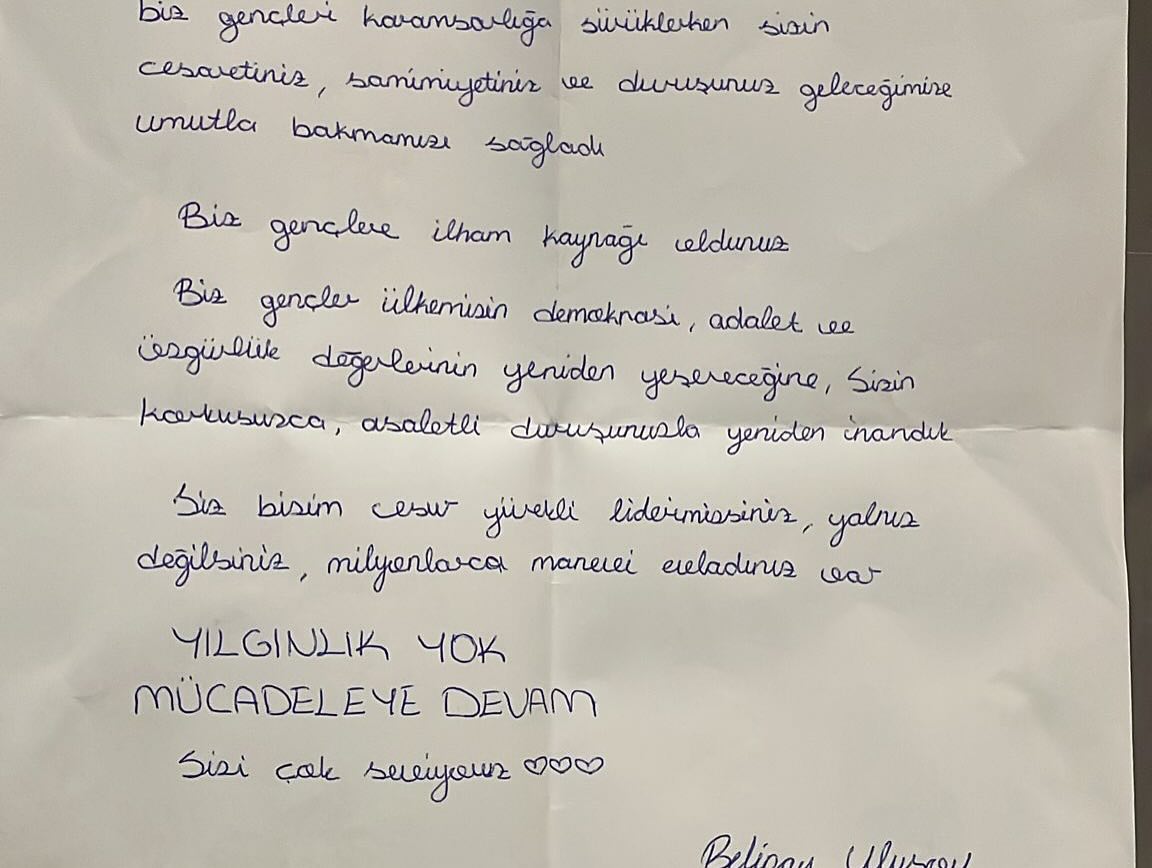 biz gençleri karamsarlığa sürüklerken sizin
cesaretiniz, samimiyetiniz ve duruşunuz geleceğimize
umutla bakmamızı sağladı
Biz gençlere ilham kaynağı oldunuz
Biz gençler ülkemizin demokrasi, adalet ve
özgürlük değerlerinin yeniden yeşereceğine, Sizin
korkusuzca, asaletli duruşunuzla yeniden inandık
Siz bizim cesur yürekli liderimizsiniz, yalnız
değilsiniz, milyonlarca manevi evladınız var
YILGINLIK YOK
MÜCADELEYE DEVAM
Sizi çok seviyoruz ♡♡♡